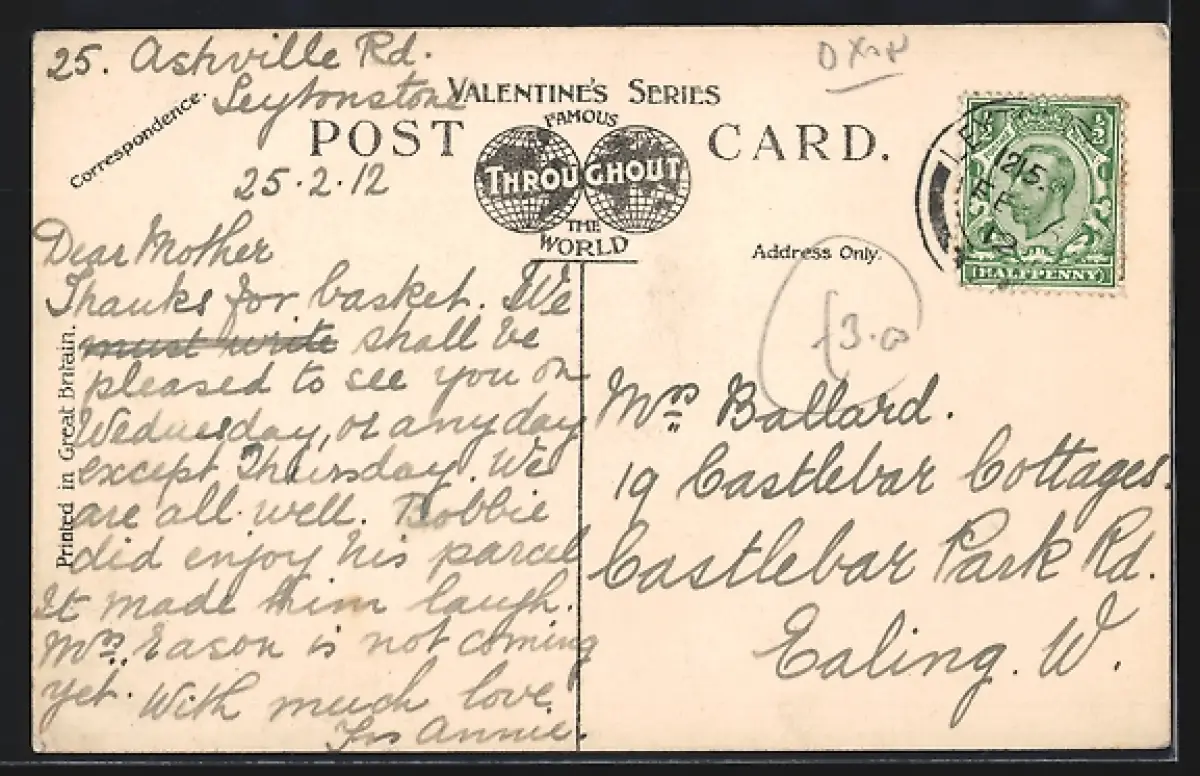 25. Ashville Rd.
Leytonstone
25.2.12
Correspondence.
VALENTINE'S SERIES
FAMOUS
POST CARD.
THROUGHOUT
THE
WORLD
Address Only.
HALFPENNY
Printed in Great Britain.
Dear Mother
Thanks for basket. We
must write shall be
pleased to see you on
Wednesday, or any day
except Thursday. We
are all well. Bobbie
did enjoy his parcel
It made him laugh.
Mrs. Eason is not coming
yet. With much love
Annie.
£3.00
Mrs Ballard.
19 Castlebar Cottages.
Castlebar Park Rd.
Ealing. W.